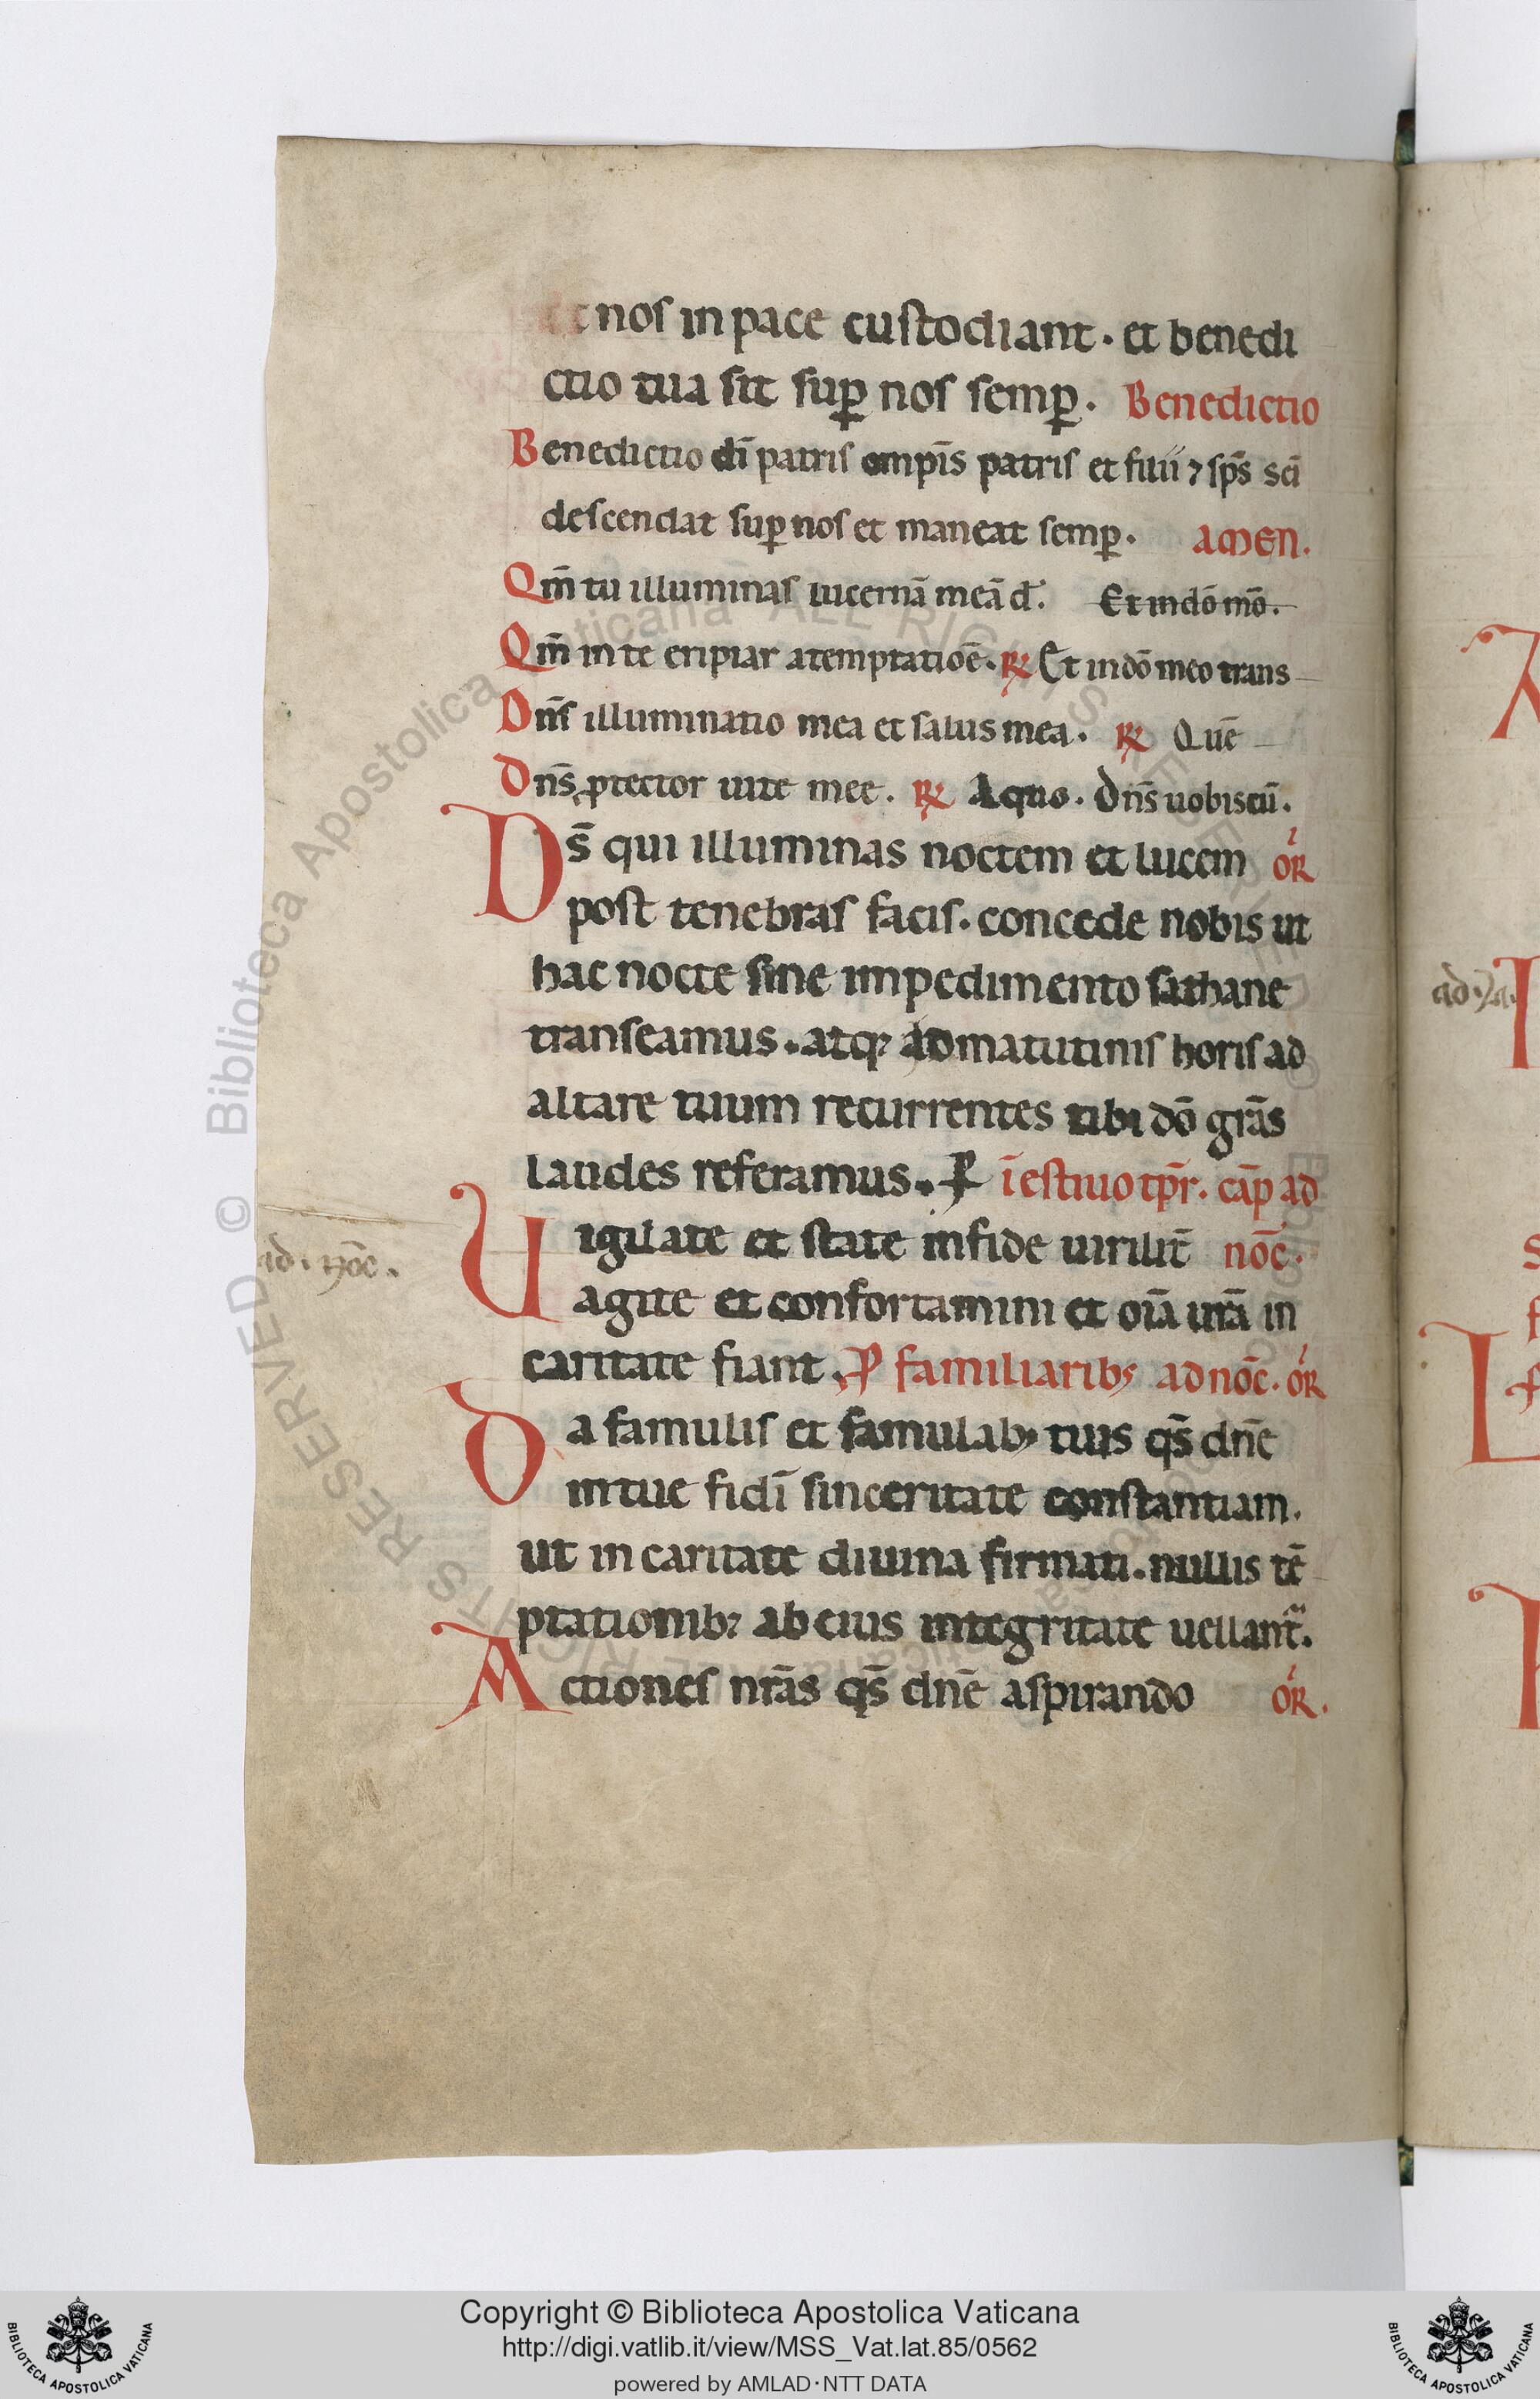 et nos in pace custodiant. et benedi
ctio tua sit suꝑ nos semꝑ. Benedictio
Benedictio dī patris ompīs patris et filii ⁊ sp̄s sc̄i
descendat suꝑ nos et maneat semꝑ. AMEN.
Qm̄ tu illuminas lucernā meā d̄. Et in dō mō.
Qm̄ in te eripiar a temptatiōē. ℞ Et in dō meo trans
Dn̄s illuminatio mea et salus mea. ℞ Quē
Dn̄s ꝓtector uite mee. ℞ A quo. Dn̄s uobiscū.
Ds̄ qui illuminas noctem et lucem or̄
post tenebras facis. concede nobis ut
hac nocte sine impedimento sathane
transeamus. atq; ad matutinis horis ad
altare tuum recurrentes tibi dō grās
laudes referamus. P ī estiuo tp̄r. cāp ad
Uigilate et state in fide uirilit̄ noc̄.
agite et confortamini et oīa ur̄a in
caritate fiant. P familiarib; ad noc̄. or̄
Da famulis et famulab; tuis qs̄ dn̄e
in tue fidī sinceritate constantiam.
ut in caritate diuina firmati. nullis tē
ptationib; ab eius integritate uellant̄.
Actiones nrās qs̄ dn̄e aspirando or̄.
ad. noc̄.
Copyright © Biblioteca Apostolica Vaticana
http://digi.vatlib.it/view/MSS_Vat.lat.85/0562
powered by AMLAD·NTT DATA
BIBLIOTECA APOSTOLICA VATICANA
BIBLIOTECA APOSTOLICA VATICANA